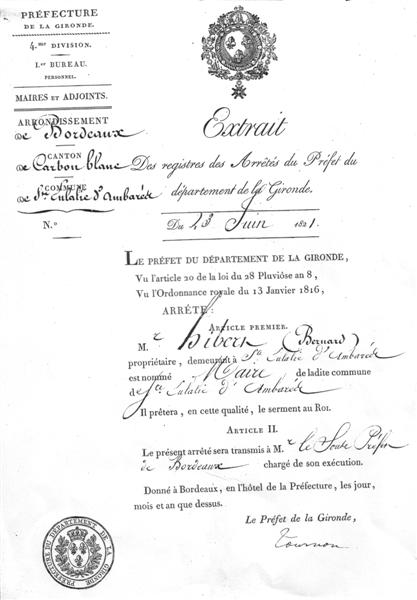 PRÉFECTURE
DE LA GIRONDE.
4.me DIVISION.
I.er BUREAU.
PERSONNEL.
MAIRES ET ADJOINTS.
ARRONDISSEMENT
de Bordeaux
CANTON
de Carbon blanc
COMMUNE
de Ste Eulalie d'Ambarés
N.o
Extrait
Des registres des Arrêtés du Préfet du
département de la Gironde.
Du 23 Juin 1821.
LE PRÉFET DU DÉPARTEMENT DE LA GIRONDE,
Vu l'article 20 de la loi du 28 Pluviôse an 8,
Vu l'Ordonnance royale du 13 Janvier 1816,
ARRÊTE :
ARTICLE PREMIER.
M.r (Bernard)
propriétaire, demeurant à Ste Eulalie d'Ambarés
est nommé Maire de ladite commune
de Ste Eulalie d'Ambarés
Il prêtera, en cette qualité, le serment au Roi.
ARTICLE II.
Le présent arrêté sera transmis à M.r le Sous Préfet
de Bordeaux chargé de son exécution.
Donné à Bordeaux, en l'hôtel de la Préfecture, les jour,
mois et an que dessus.
Le Préfet de la Gironde,
Tournon
PRÉFECTURE DU DÉPARTEMENT DE LA GIRONDE